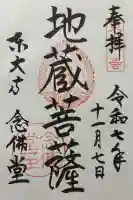 奉拝
令和七年
十一月七日
地蔵菩薩
東大寺
念佛堂